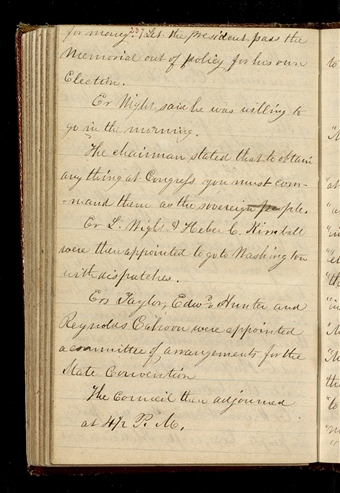 for money. Let the President pass the
Memorial out of policy for his own
Election.
Er Wight said he was willing to
go in the morning.
The chairman stated that to obtain
any thing at Congress you must com-
-mand them as the sovereign people.
Er L. Wight & Heber C. Kimball
were then appointed to go to Washington
with dispatches.
Ers Taylor, Edwd Hunter and
Reynolds Cahoon were appointed
a committee of arrangements for the
State Convention
The Council then adjourned
at 4½ P. M.